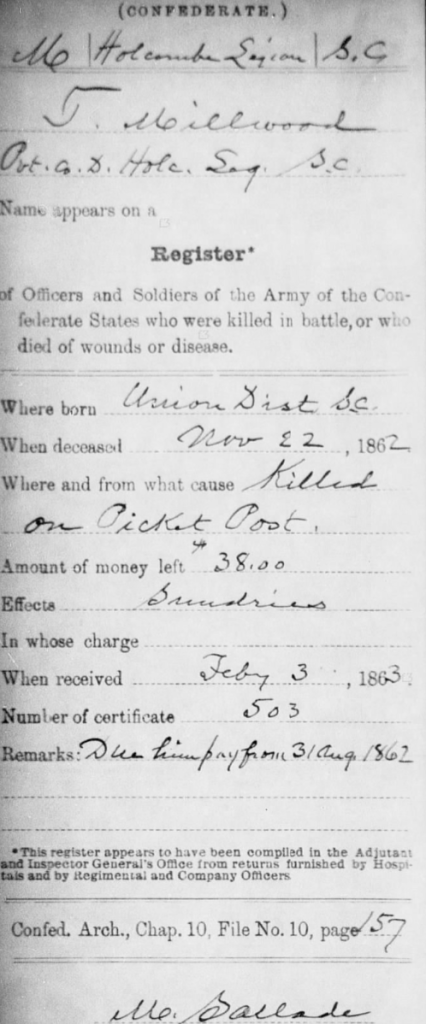 (CONFEDERATE.)
M | Holcombe Legion | S.C.
T. Millwood
Pvt. Co. D. Holc. Leg. S.C.
Name appears on a
Register*
of Officers and Soldiers of the Army of the Con-
federate States who were killed in battle, or who
died of wounds or disease.
Where born Union Dist S.C.
When deceased Nov 22, 1862
Where and from what cause Killed
on Picket Post.
Amount of money left $38.00
Effects Sundries
In whose charge
When received Feby 3, 1863.
Number of certificate 503
Remarks: Due him pay from 31 Aug 1862
*This register appears to have been compiled in the Adjutant
and Inspector General's Office from returns furnished by Hospi-
tals and by Regimental and Company Officers.
Confed. Arch., Chap. 10, File No. 10, page 157